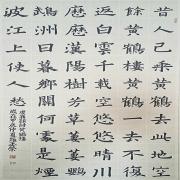 昔人已乘黄鶴去此地空
餘黄鶴樓黄鶴一去不復
返白雲千載空悠悠晴川
歷歷漢陽樹芳草萋萋鸚
鵡洲日暮鄉關何處是煙
波江上使人愁